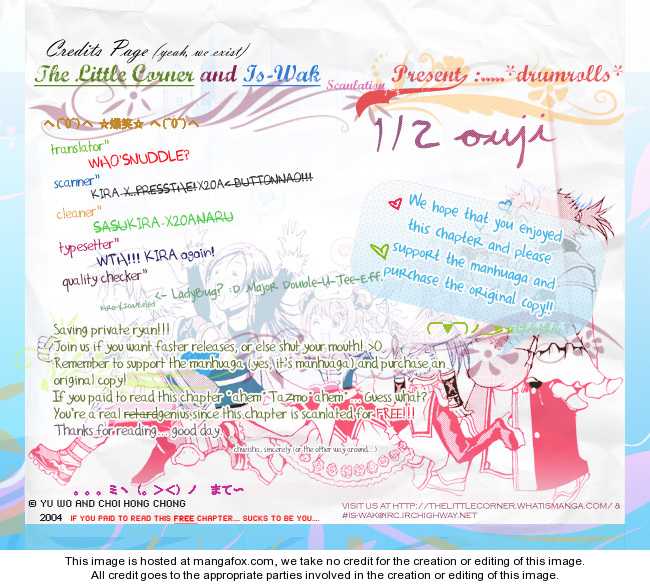 Credits Page (yeah, we exist)
The Little Corner and Is-Wak Scanlation Present, :.....*drumrolls*
1/2 ouji
ヘ(´0`)ヘ ☆爆笑☆ ヘ(´0`)ヘ
translator"
WHO'SNUDDLE?
scanner"
KIRA-X..PRESSTHE!X20A< BUTTONNAO!!!
cleaner"
SASUKIRA-X20ANARU
typesetter"
WTH!!! KIRA again!
quality checker"
<- LadyBug? :D Major Double-U-Tee-Eff.
We hope that you enjoyed
this chapter and please
support the manhuaga and
purchase the original copy!!
Saving private ryan!!!
Join us if you want faster releases, or else shut your mouth! >0
Remember to support the manhuaga (yes, it's manhuaga) and purchase an
original copy!
If you paid to read this chapter *ahem* Tazmo *ahem*... Guess what?
You're a real retardgenius since this chapter is scanlated for FREE!!!
Thanks for reading... good day.
。。。ミヽ（。＞＜）ノ まて～
© YU WO AND CHOI HONG CHONG
2004 IF YOU PAID TO READ THIS FREE CHAPTER... SUCKS TO BE YOU...
VISIT US AT HTTP://THELITTLECORNER.WHATISMANGA.COM/ &
#IS-WAK@IRC.IRCHIGHWAY.NET
This image is hosted at mangafox.com, we take no credit for the creation or editing of this image.
All credit goes to the appropriate parties involved in the creation or editing of this image.